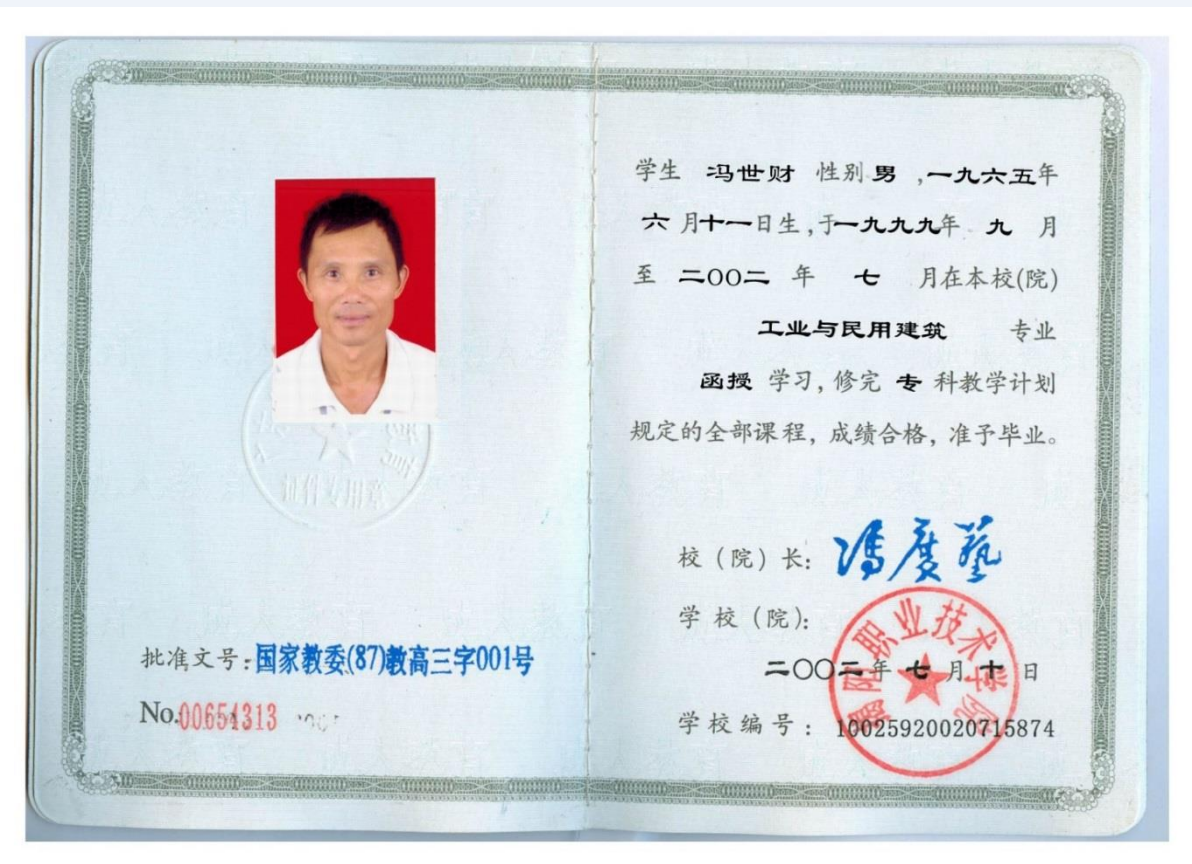 证件专用章
批准文号:国家教委(87)教高三字001号
No.00654313
学生 冯世财 性别 男 ,一九六五年
六 月十一日生,于一九九九年 九 月
至 二〇〇二 年 七 月在本校(院)
工业与民用建筑 专业
函授 学习, 修完 专 科教学计划
规定的全部课程, 成绩合格, 准予毕业。
校（院）长:
学 校（院）:
阳职业技术学院
二〇〇二年 七 月 十 日
学 校 编 号 : 100259200207​15874